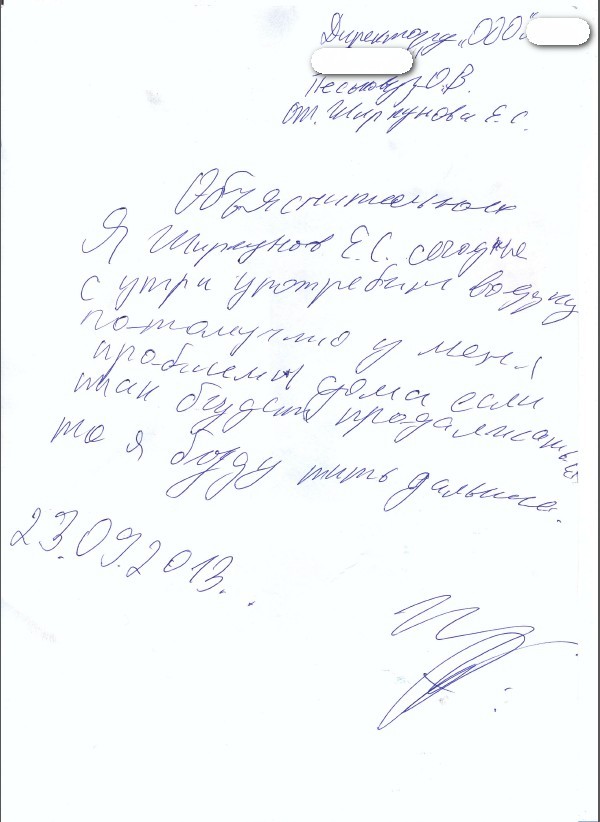 Директору "ООО"
Песькову О.В.
от. Ширкунова Е.С.
Объяснительная
Я Ширкунов Е.С. сегодне
с утри употребил водку
потомучто у меня
проблемы дома если
так будет продалжаться
то я буду пить дальше.
23.09.2013.